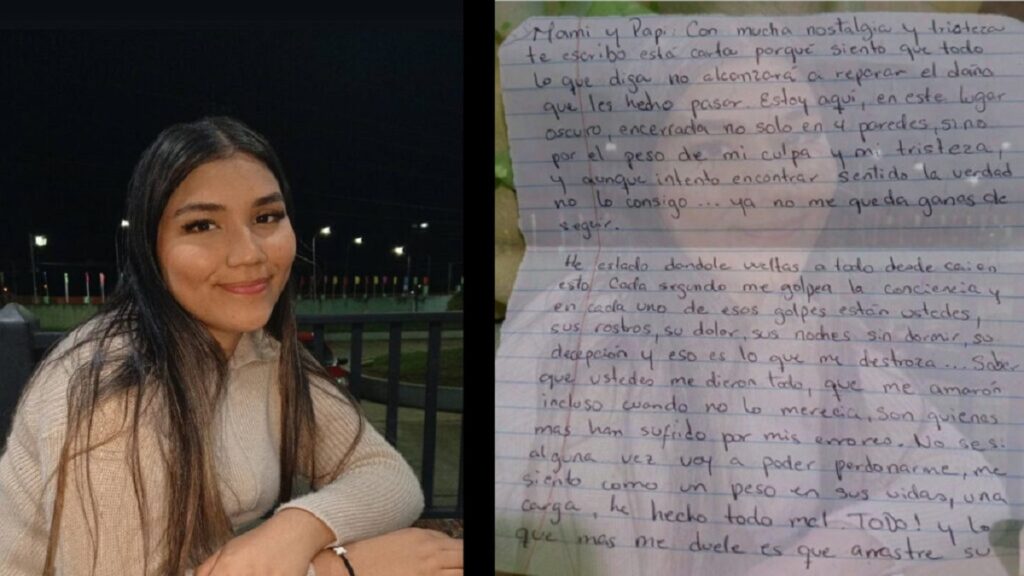 Mami y Papi: Con mucha nostalgia y tristeza
te escribo está carta porqué siento que todo
lo que diga no alcanzará a reparar el daño
que les hedho pasar. Estoy aqui, en este lugar
oscuro, encerrada no solo en 4 paredes, sino
por el peso de mi culpa y mi tristeza,
y aunque intento encontrar sentido la verdad
no lo consigo... ya no me queda ganas de
seguir.
He estado dandole vueltas a todo desde cai en
esto. Cada segundo me golpea la conciencia y
en cada uno de esos golpes están ustedes,
sus rostros, su dolor, sus noches sin dormir, su
decepción y eso es lo que me destroza... Saber
que ustedes me dieron todo, que me amarón
incluso cuando no lo merecia, son quienes
mas han sufrido por mis errores. No se si
alguna vez voy a poder perdonarme, me
siento como un peso en sus vidas, una
carga, he hecho todo mal TODO! y lo
que mas me duele es que arrastre su